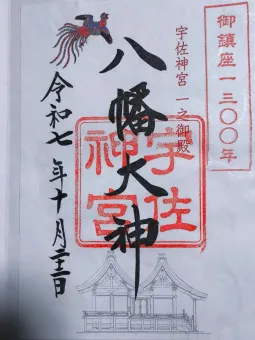 御鎮座一三〇〇年
宇佐神宮 一之御殿
八幡大神
宇佐神宮
令和七年十月二十三日